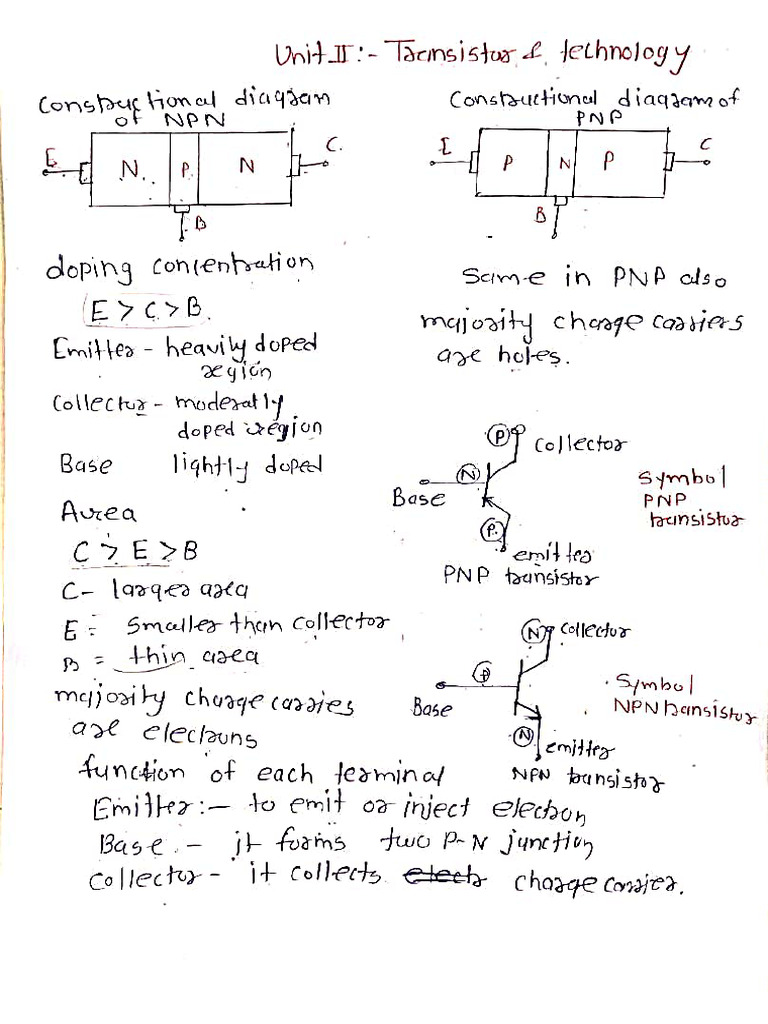 Unit II :- Transistor & technology
Constructional diagram
of NPN
E
N
P
N
C
B
doping concentration
E > C > B
Emitter - heavily doped
region
Collector - moderatly
doped region
Base lightly doped
Area
C > E > B
C - larger area
E = Smaller than collector
B = thin area
majority charge carries
are electrons
Constructional diagram of
PNP
E
P
N
P
C
B
Same in PNP also
majority charge carriers
are holes.
P
Collector
N
Base
P
emitter
PNP transistor
Symbol
PNP
transistor
N
Collector
P
Base
N
emitter
NPN transistor
Symbol
NPN transistor
function of each terminal
Emitter :- to emit or inject electron
Base - it forms two P-N junction
Collector - it collects charge carrier.